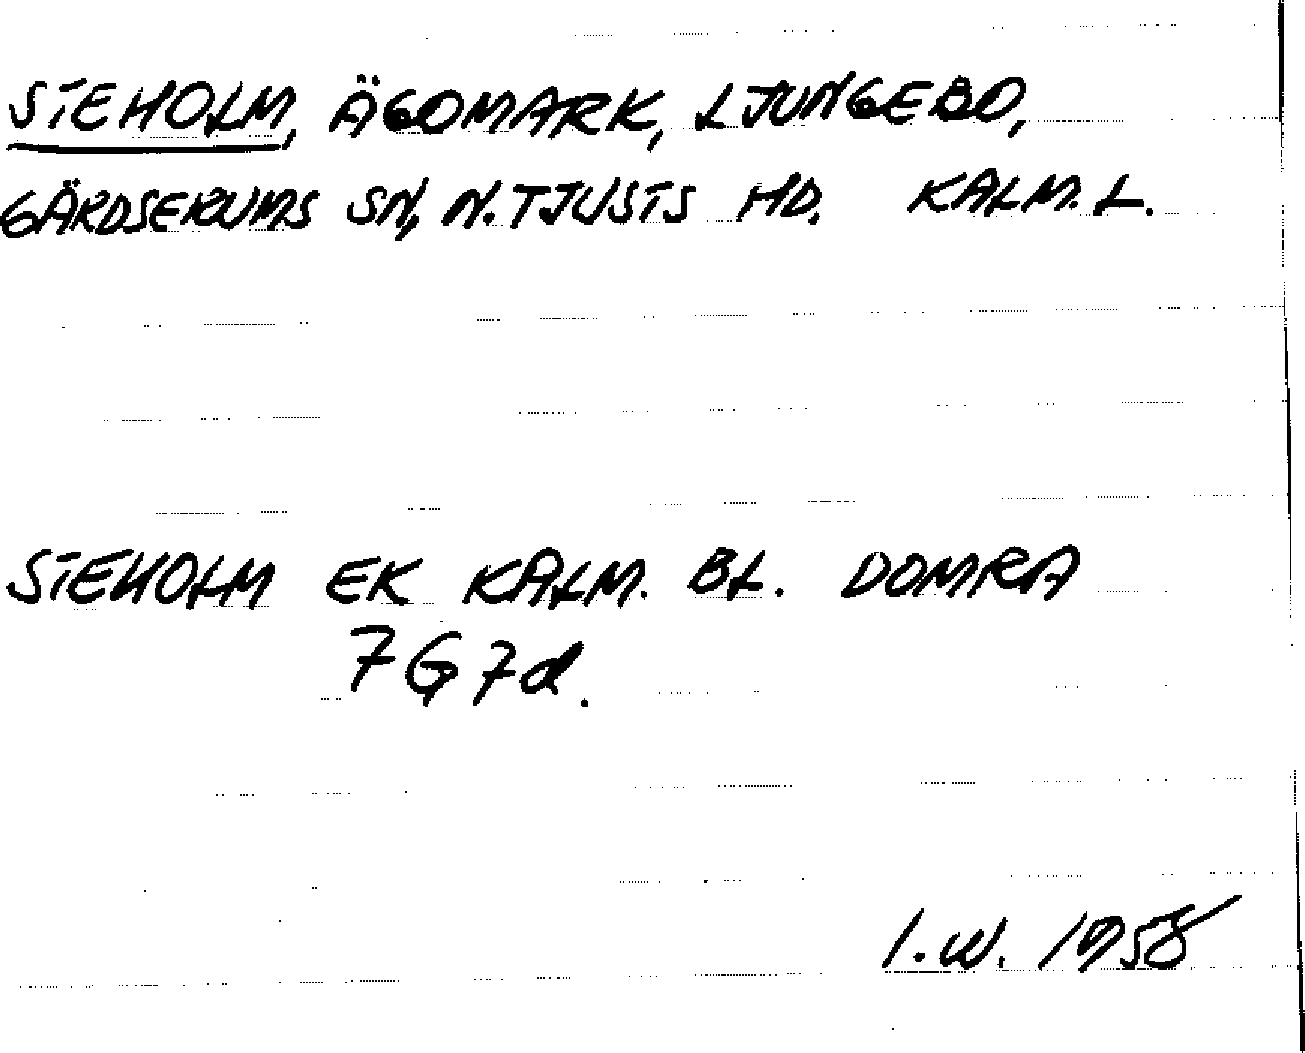 STEHOLM, ÄGOMARK, LJUNGEBO,
GÄRDSERUMS SN, N. TJUSTS HD. KALM. L.
STEHOLM EK KALM. BL. DOMRA
7G7d.
I.W. 1958